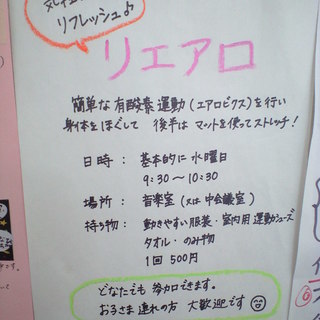 リフレッシュ♪
リエアロ
簡単な有酸素運動(エアロビクス)を行い
身体をほぐして 後半はマットを使ってストレッチ!
日時: 基本的に水曜日
9:30~10:30
場所: 音楽室(又は中会議室)
持ち物: 動きやすい服装・室内用運動シューズ
タオル・のみ物
1回 500円
どなたでも参加できます。
お子さま連れの方 大歓迎です